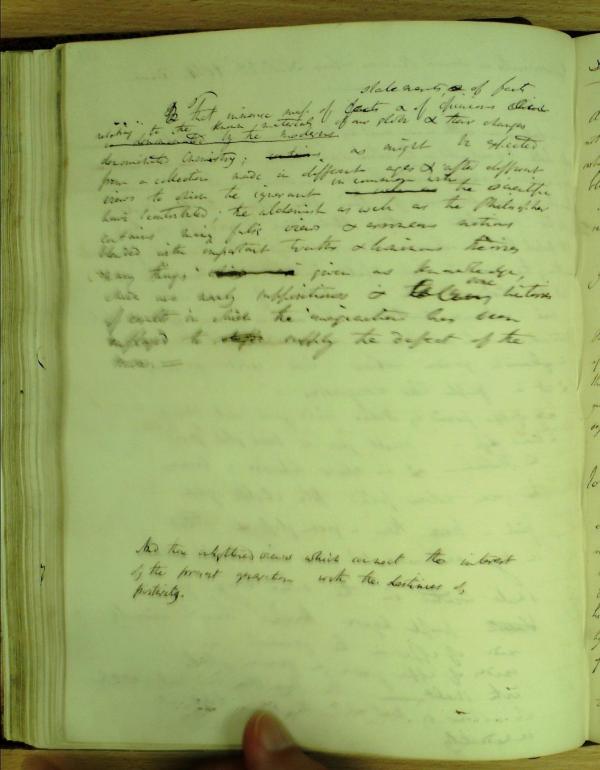 statements, & of facts
That immense mass of facts & of opinions
relating to the known materials of our globe & their changes
denominated by the moderns
denominated Chemistry; as might be expected
from a collection made in different ages & after different
views to which the ignorant in common with the scientific
have contributed; the alchemist as well as the Philosopher
contains many false views & erroneous notions
blended with important truths & luminous theories
Many things given as knowledge,
which are merely suppositions &
of results in which the imagination has been
employed to supply the defect of the
And those enlightened views which connect the interest
of the present generation with the destinies of
posterity.